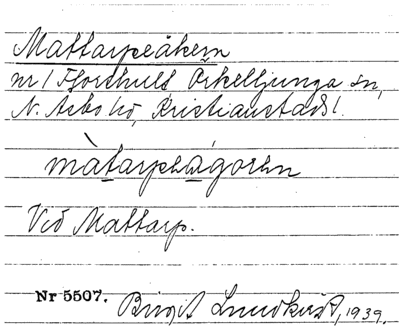 Mattarpeåkern
nr 1 Fjorthult Örkelljunga sn,
N. Åsbo hd, Kristianstads l.
Vid Mattarp.
Nr 5507. Birgit Lundkvist, 1939.